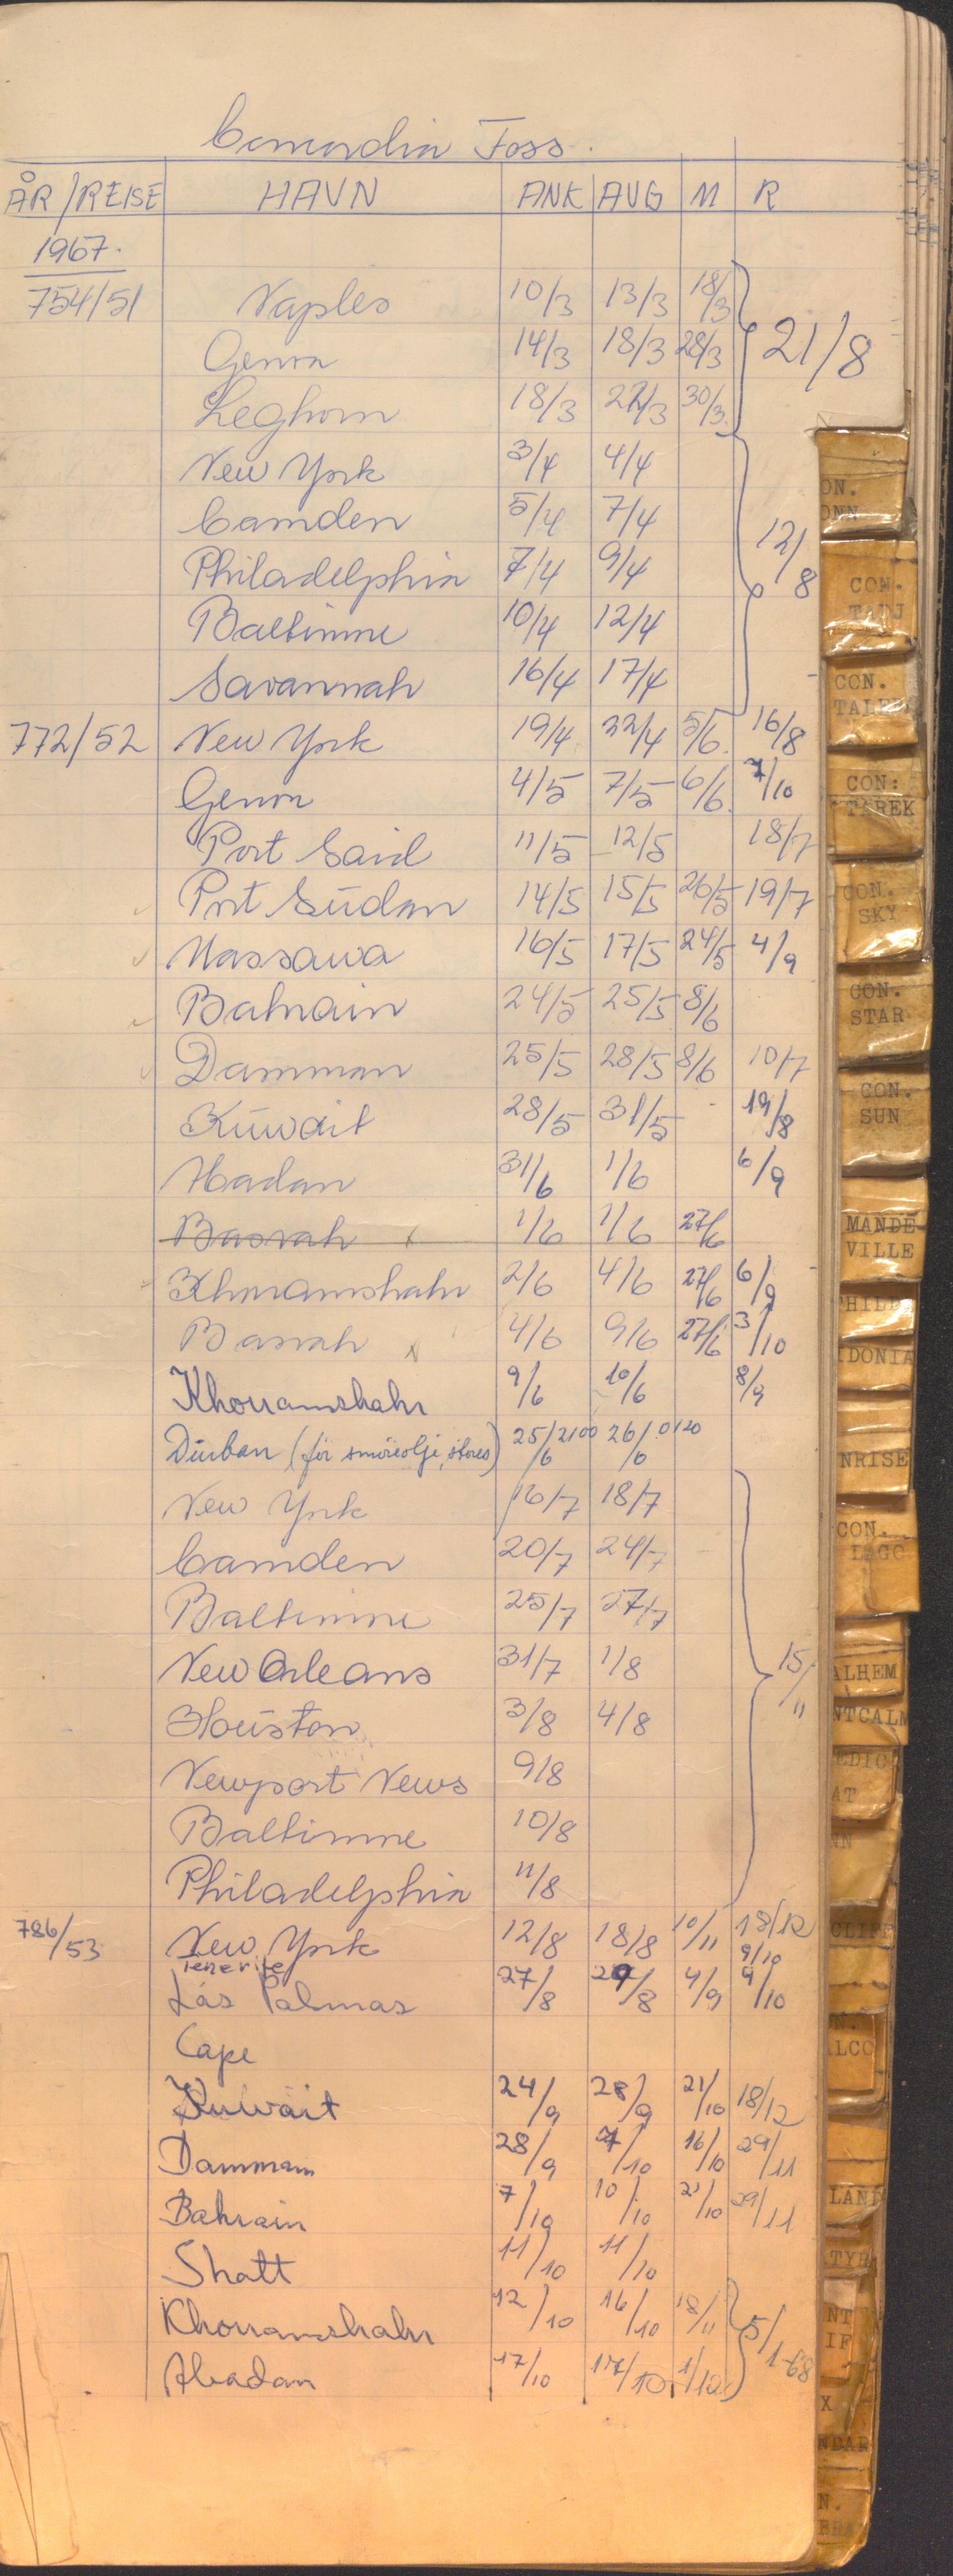 Concordia Foss.
ÅR/REISE HAVN ANK AVG M R
1967.
754/51 Naples 10/3 13/3 18/3
Genoa 14/3 18/3 28/3 21/8
Leghorn 18/3 22/3 30/3
New York 3/4 4/4
Camden 5/4 7/4
Philadelphia 7/4 9/4 12/8
Baltimore 10/4 12/4
Savannah 16/4 17/4
772/52 New York 19/4 22/4 5/6 16/8
Genoa 4/5 7/5 6/6 7/10
Port Said 11/5 12/5 18/7
Port Sudan 14/5 15/5 26/5 19/7
Massawa 16/5 17/5 24/5 4/9
Bahrain 24/5 25/5 8/6
Dammam 25/5 28/5 8/6 10/7
Kuwait 28/5 31/5 19/8
Abadan 31/6 1/6 6/9
Basrah 1/6 1/6 27/6
Khoramshahr 2/6 4/6 27/6 6/9
Basrah 4/6 9/6 27/6 3/10
Khorramshahr 9/6 10/6 8/9
Durban (for smøreolje, stores) 25/6 2100 26/6 0120
New York 16/7 18/7
Camden 20/7 24/7
Baltimore 25/7 27/7
New Orleans 31/7 1/8 15/11
Houston 3/8 4/8
Newport News 9/8
Baltimore 10/8
Philadelphia 11/8
786/53 New York 12/8 18/8 10/11 18/12
Tenerife 9/10
Las Palmas 27/8 29/8 4/9 9/10
Cape
Kuwait 24/9 28/9 21/10 18/12
Dammam 28/9 7/10 16/10 29/11
Bahrain 7/10 10/10 21/10 29/11
Shatt 11/10 11/10
Khorramshahr 12/10 16/10 18/11 5/1-68
Abadan 17/10 17/10 1/12
CON.
CON.
TALE
CON:
TAREK
CON.
SKY
CON.
STAR
CON.
SUN
MANDE
VILLE
PHIL
IDONIA
NRISE
CON.
LAGO
ALHEM
NTCALM
EDIC
AT
NN
CLIFF
ALCO
LAND
TYR
NT
IF
X
NDAR
N.